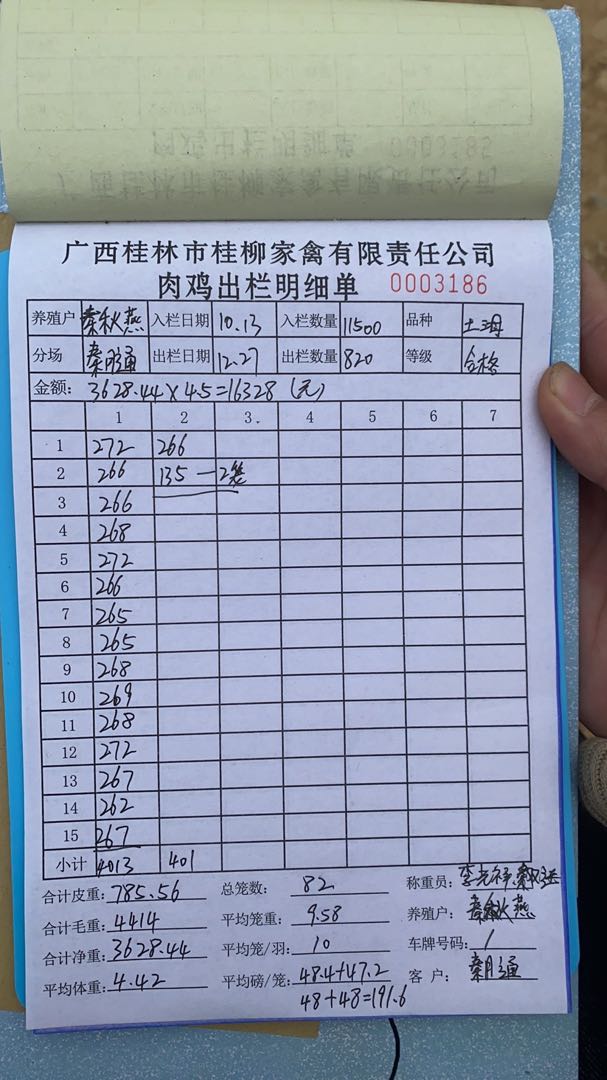 广西桂林市桂柳家禽有限责任公司
肉鸡出栏明细单 0003186
养殖户 秦秋燕 入栏日期 10.13 入栏数量 11500 品种 土
分场 秦明通 出栏日期 12.27 出栏数量 820 等级 合格
金额: 3628.44×4.5=16328 (元)
1 2 3. 4 5 6 7
1 272 266
2 266 135 — 2笼
3 266
4 268
5 272
6 266
7 265
8 265
9 268
10 269
11 268
12 272
13 267
14 262
15 267
小计 4013 401
合计皮重: 785.56 总笼数: 82 称重员:
合计毛重: 4414 平均笼重: 9.58 养殖户: 秦秋燕
合计净重: 3628.44 平均笼/羽: 10 车牌号码: /
平均体重: 4.42 平均磅/笼: 48.4+47.2 客 户: 秦明通
48+48=191.6